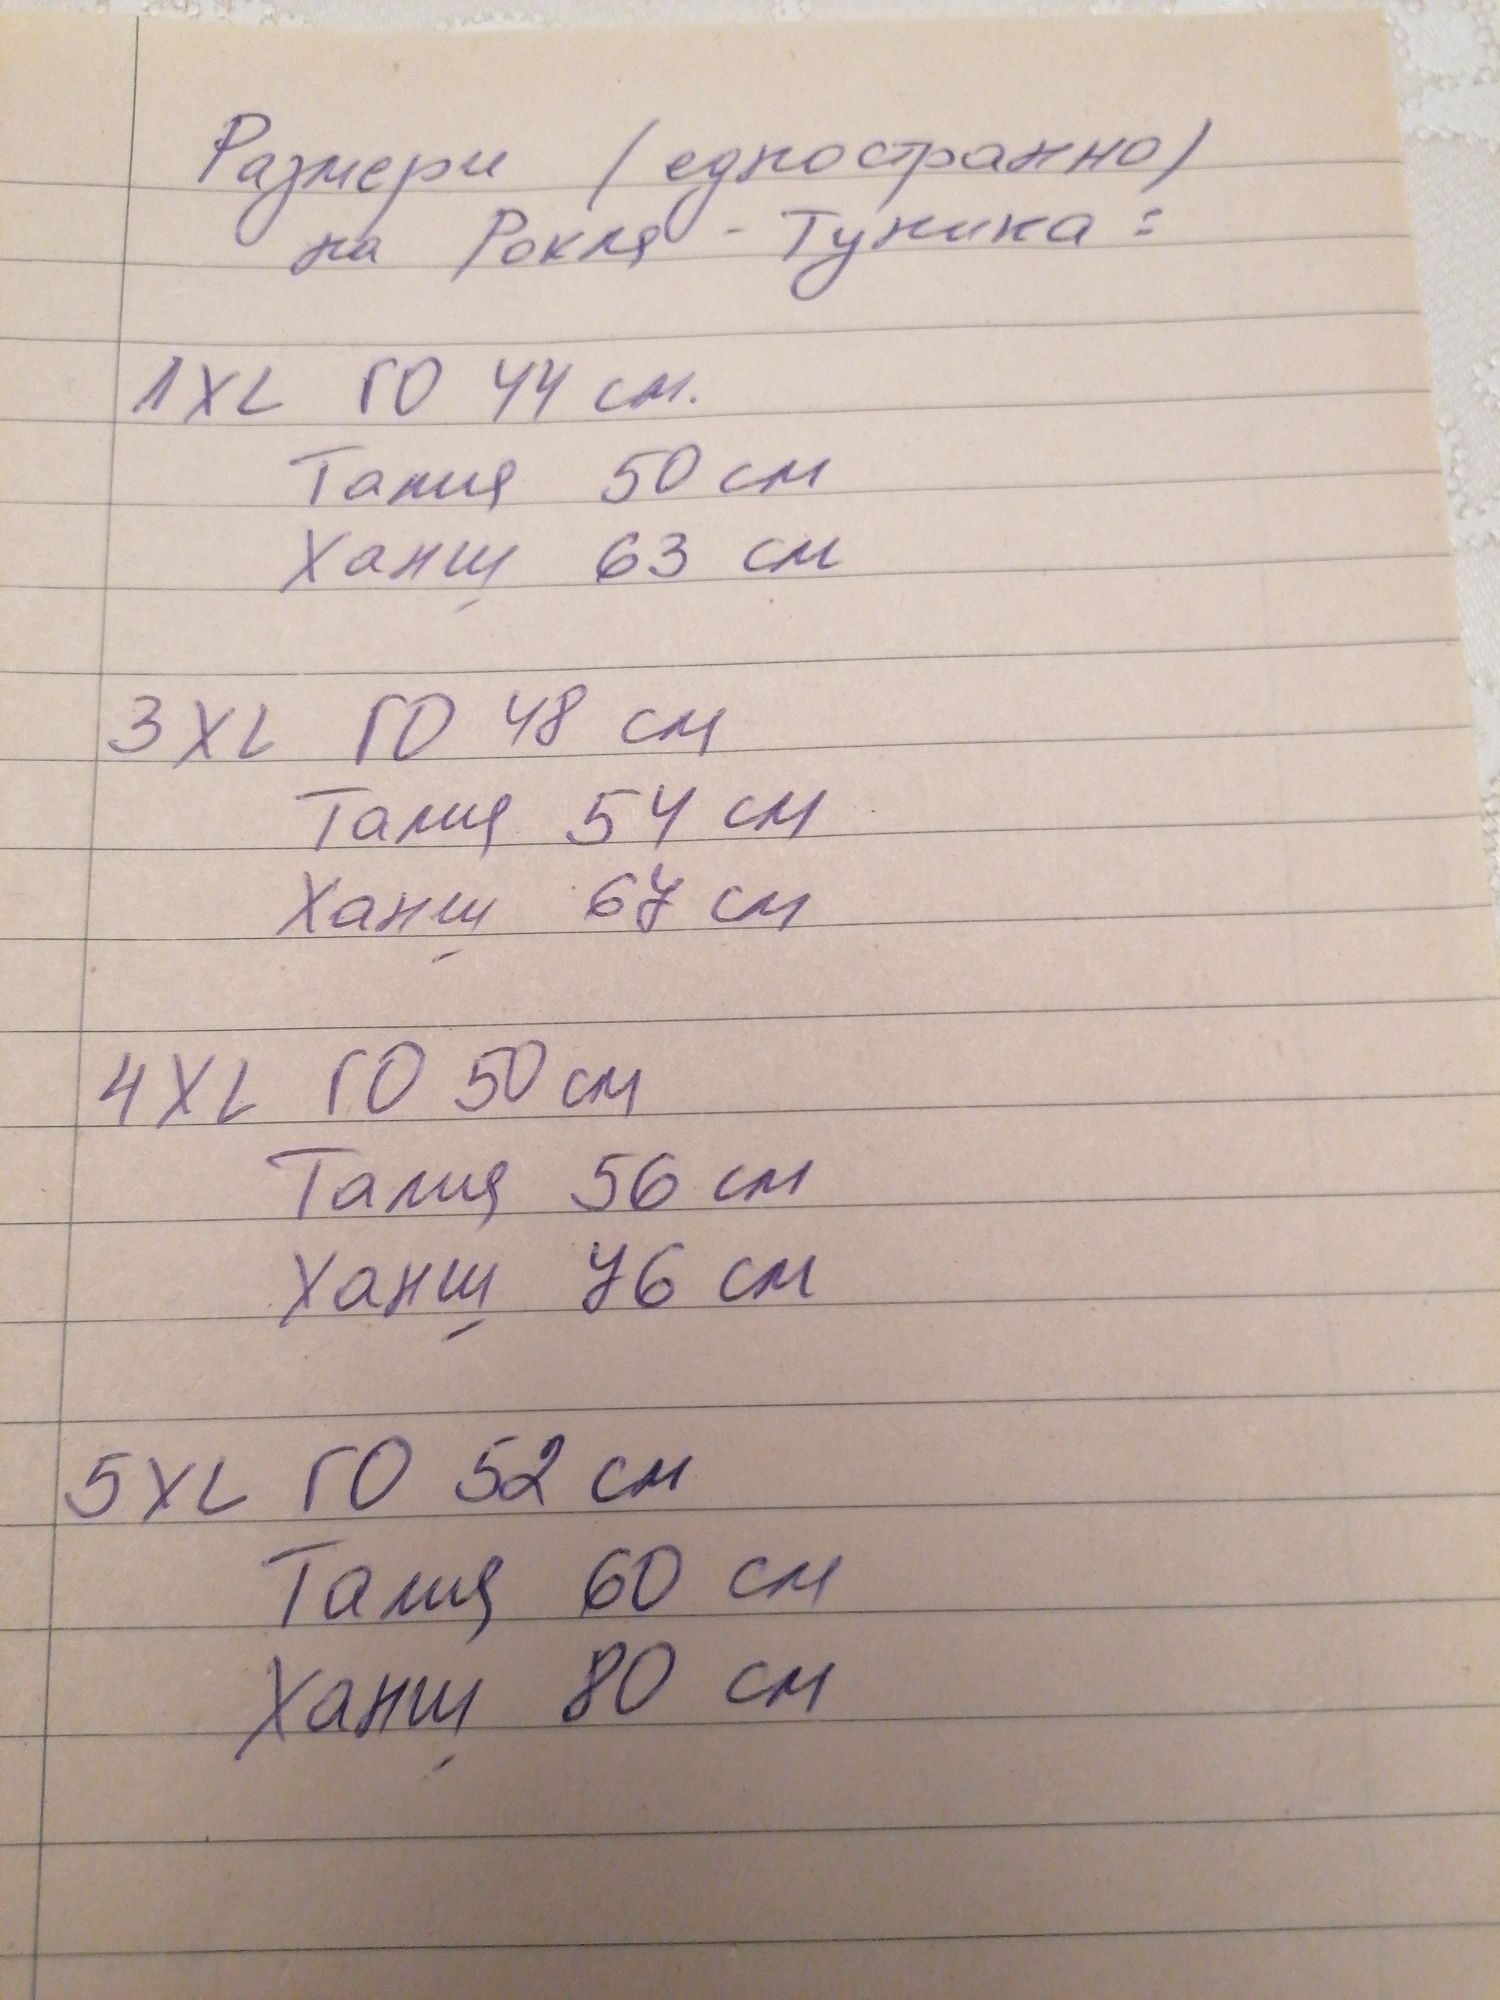 Размери (едностранно)
на Рокля - Туника:
1XL ГО 44 см.
Талия 50 см
Ханш 63 см
3XL ГО 48 см
Талия 54 см
Ханш 67 см
4XL ГО 50 см
Талия 56 см
Ханш 76 см
5XL ГО 52 см
Талия 60 см
Ханш 80 см